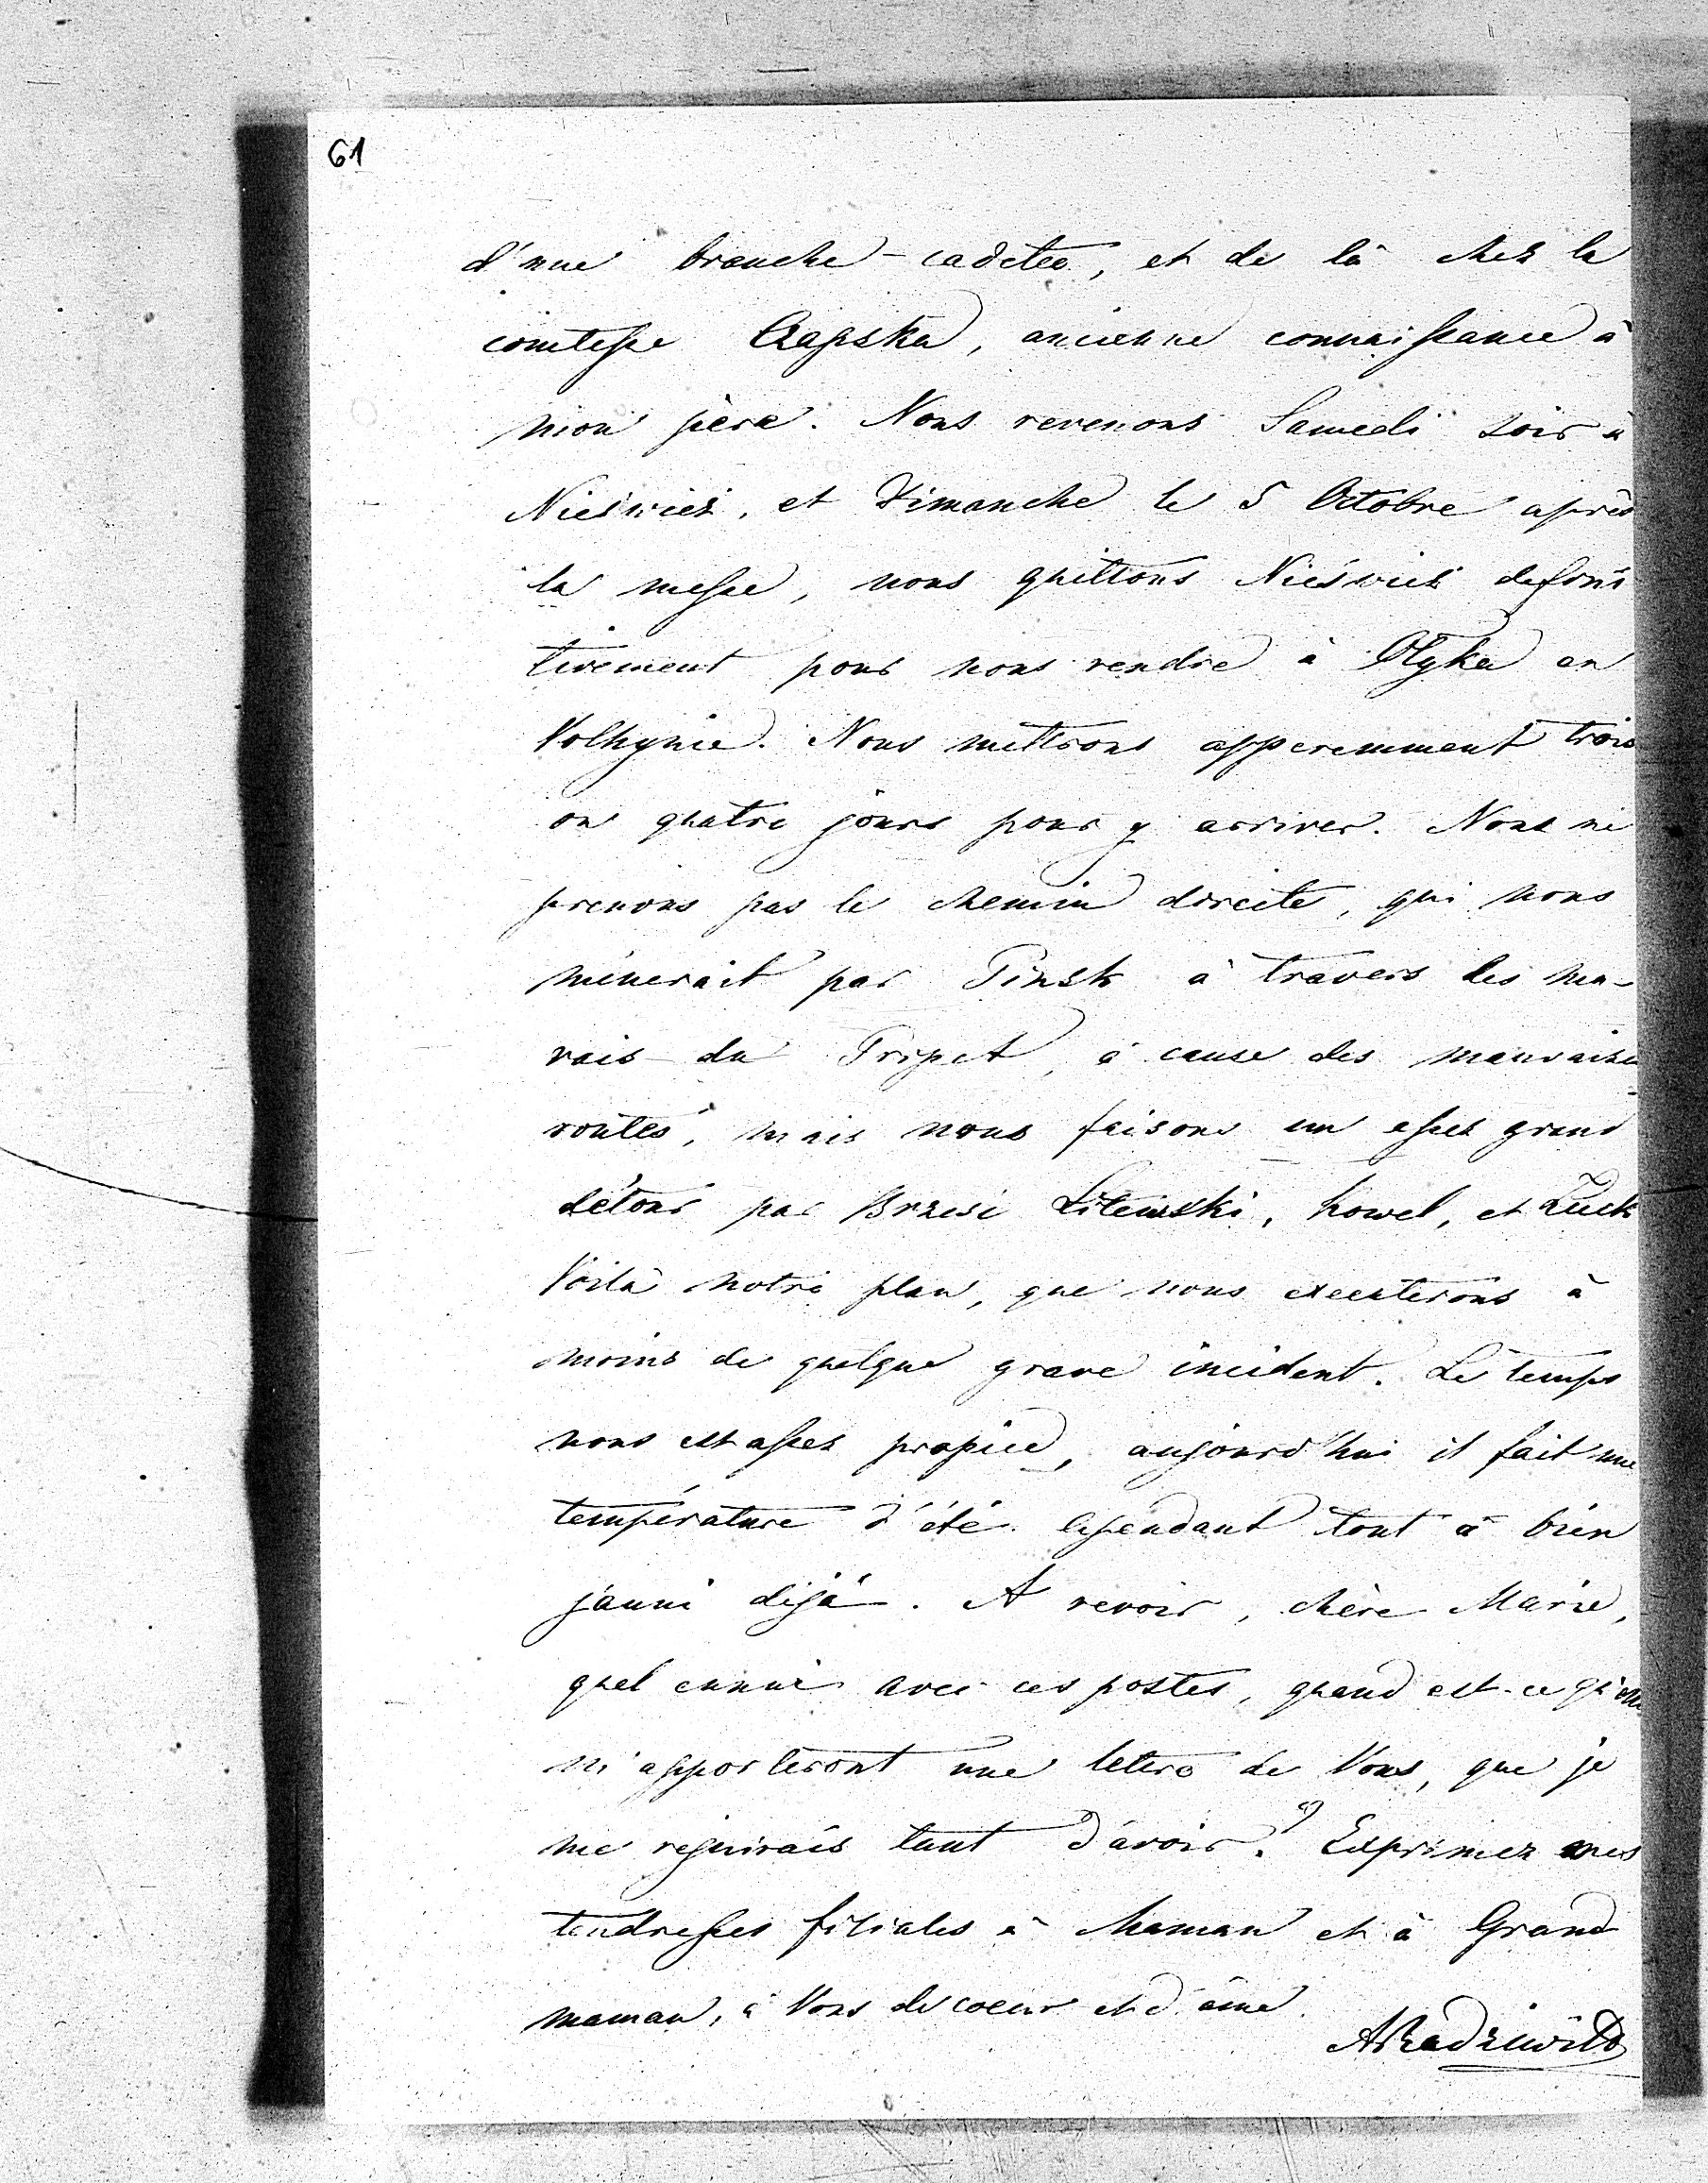 61
d'une branche-cadette, et de là chez la
comtesse Czapska, ancienne connaissance à
mon père. Nous revenons Samedi soir à
Nieświeź, et Dimanche le 5 Octobre après
la messe, nous quittons Nieświeź defini
tivement pour nous rendre à Ołyka en
Volhynie. Nous mettrons apperemment trois
ou quatre jours pour y arriver. Nous ne
prenons pas le chemin directe, qui nous
mènerait par Pinsk à travers les ma-
rais du Pripet, à cause des mauvaises
routes, mais nous faisons un assez grand
détour par Brześć Litewski, Kowel, et Łuck
Voilà notre plan, que nous executerons à
moins de quelque grave incident. Le temps
nous est assez propice, aujourd'hui il fait une
température d'été. Cependant tout a bien
jauni déjà. A revoir, chère Marie,
quel ennui avec ces postes, quand est-ce qu'elles
m'apporteront une lettre de Vous, que je
me rejouirais tant d'avoir? Exprimez mes
tendresses filiales à Maman et à Grand
maman, à Vous de coeur et d'âme.
ARadziwiłł